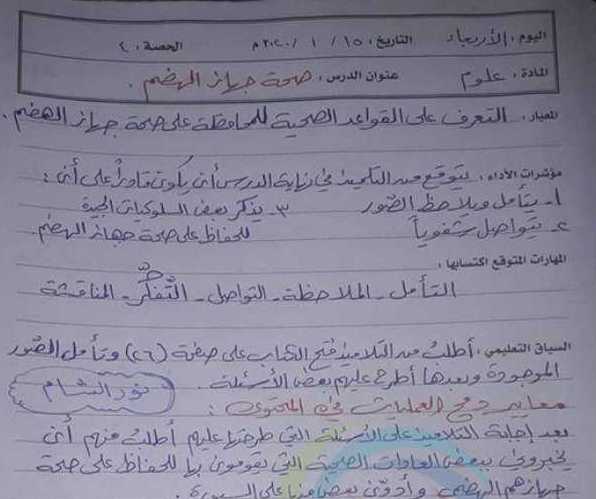 اليوم : الأربعاء التاريخ : ١٥ / ١ / ٢٠٢٠م الحصة : ٤
المادة : علوم عنوان الدرس : صحة جهاز الهضم .
المعيار : التعرف على القواعد الصحية للمحافظة على صحة جهاز الهضم .
مؤشرات الأداء : يتوقع من التلميذ في نهاية الدرس أن يكون قادراً على أن :
١- يتأمل ويلاحظ الصُّور ٣- يذكر بعض السلوكيات الجيدة
٢- يتواصل شفوياً للحفاظ على صحة جهاز الهضم .
المهارات المتوقع اكتسابها :
التأمل - الملاحظة - التواصل - التَّفكُّر - المناقشة
السياق التعليمي : أطلبُ من التلاميذ فتح الكتاب على صفحة (٢٦) وتأمل الصُّور
الموجودة وبعدها أطرح عليهم بعض الأسئلة .
نور الشام
معايير دمج العمليات في المحتوى :
بعد إجابة التلاميذ على الأسئلة التي طرحتها عليهم أطلبُ منهم أن
يخبروني ببعض العادات الصحية التي يقومون بها للحفاظ على صحة
جهازهم الهضمي وأدوّن بعضٌ منها على السبورة .